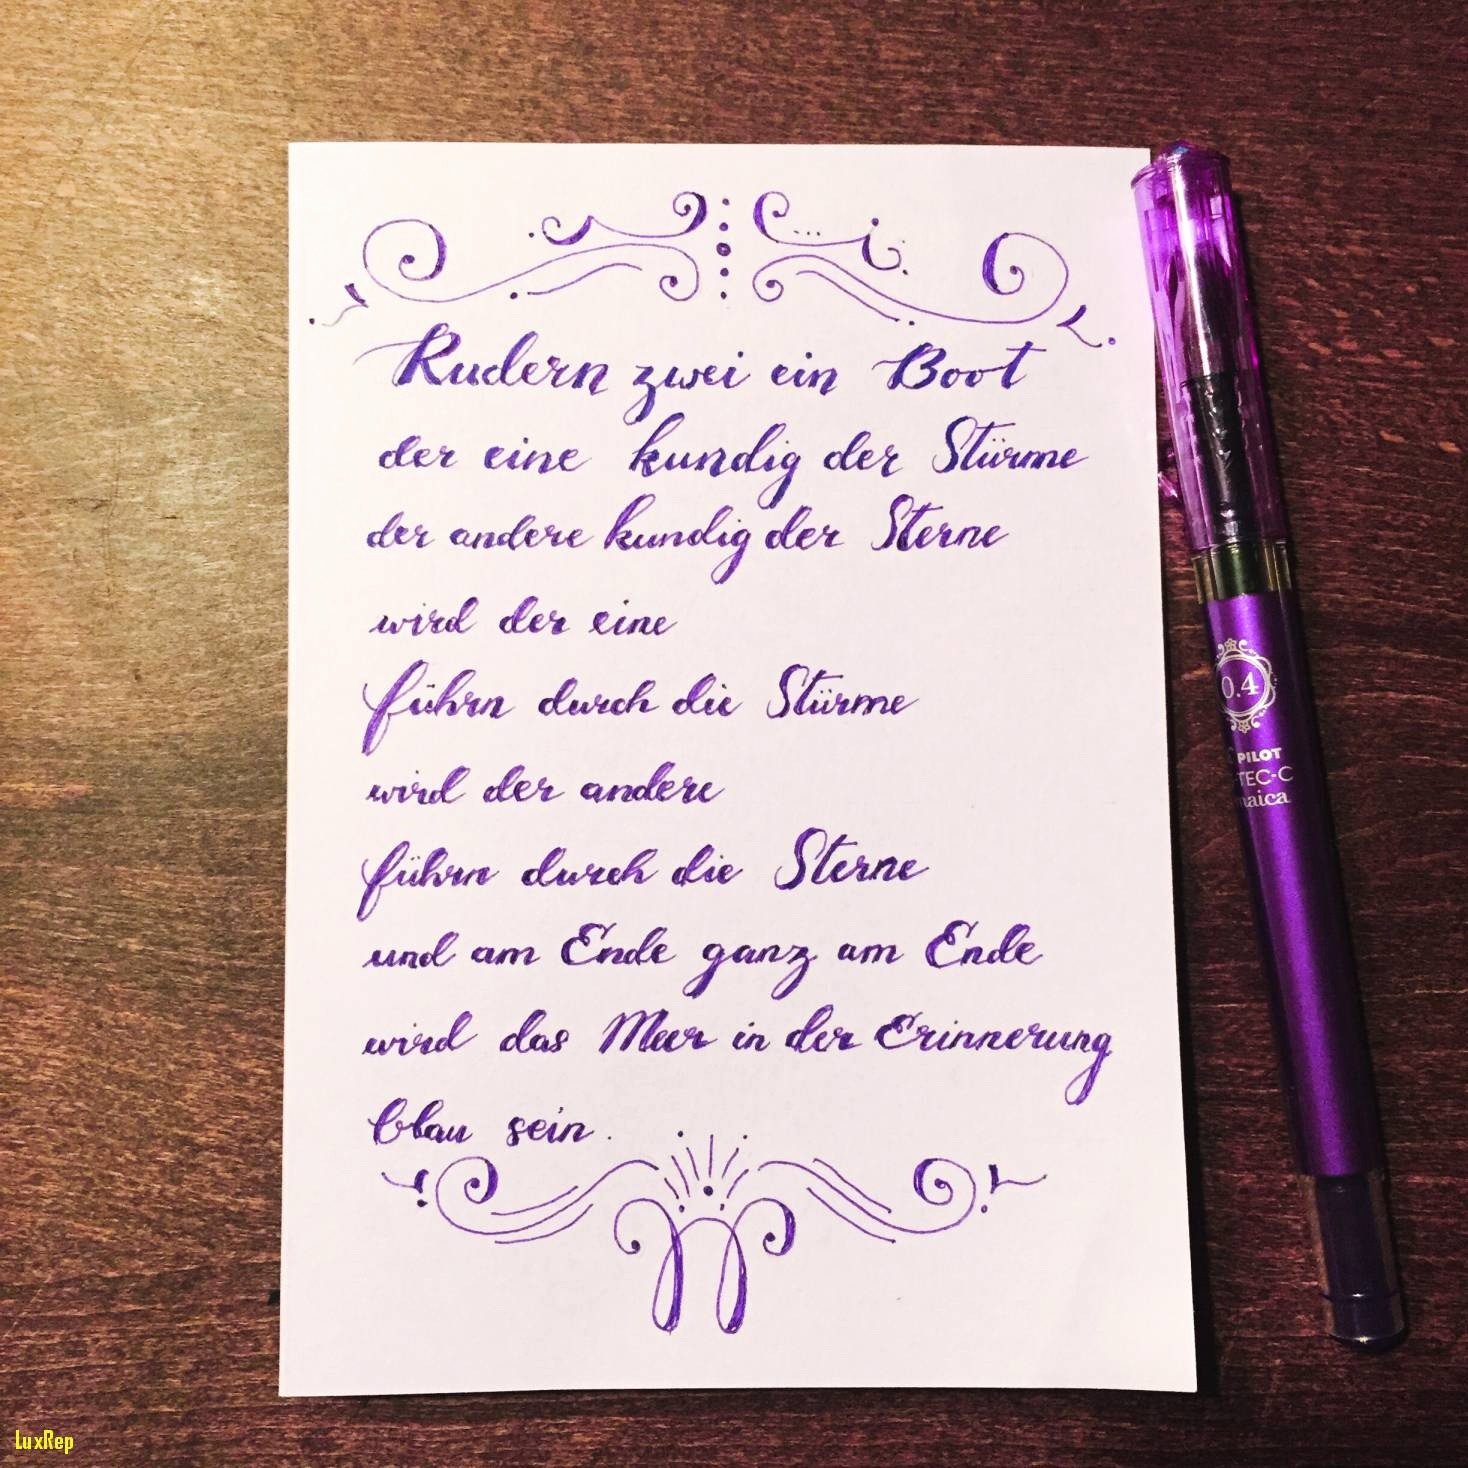 Rudern zwei ein Boot
der eine kundig der Stürme
der andere kundig der Sterne
wird der eine
führn durch die Stürme
wird der andere
führn durch die Sterne
und am Ende ganz am Ende
wird das Meer in der Erinnerung
blau sein.
0.4
PILOT
TEC-C
maica
LuxRep